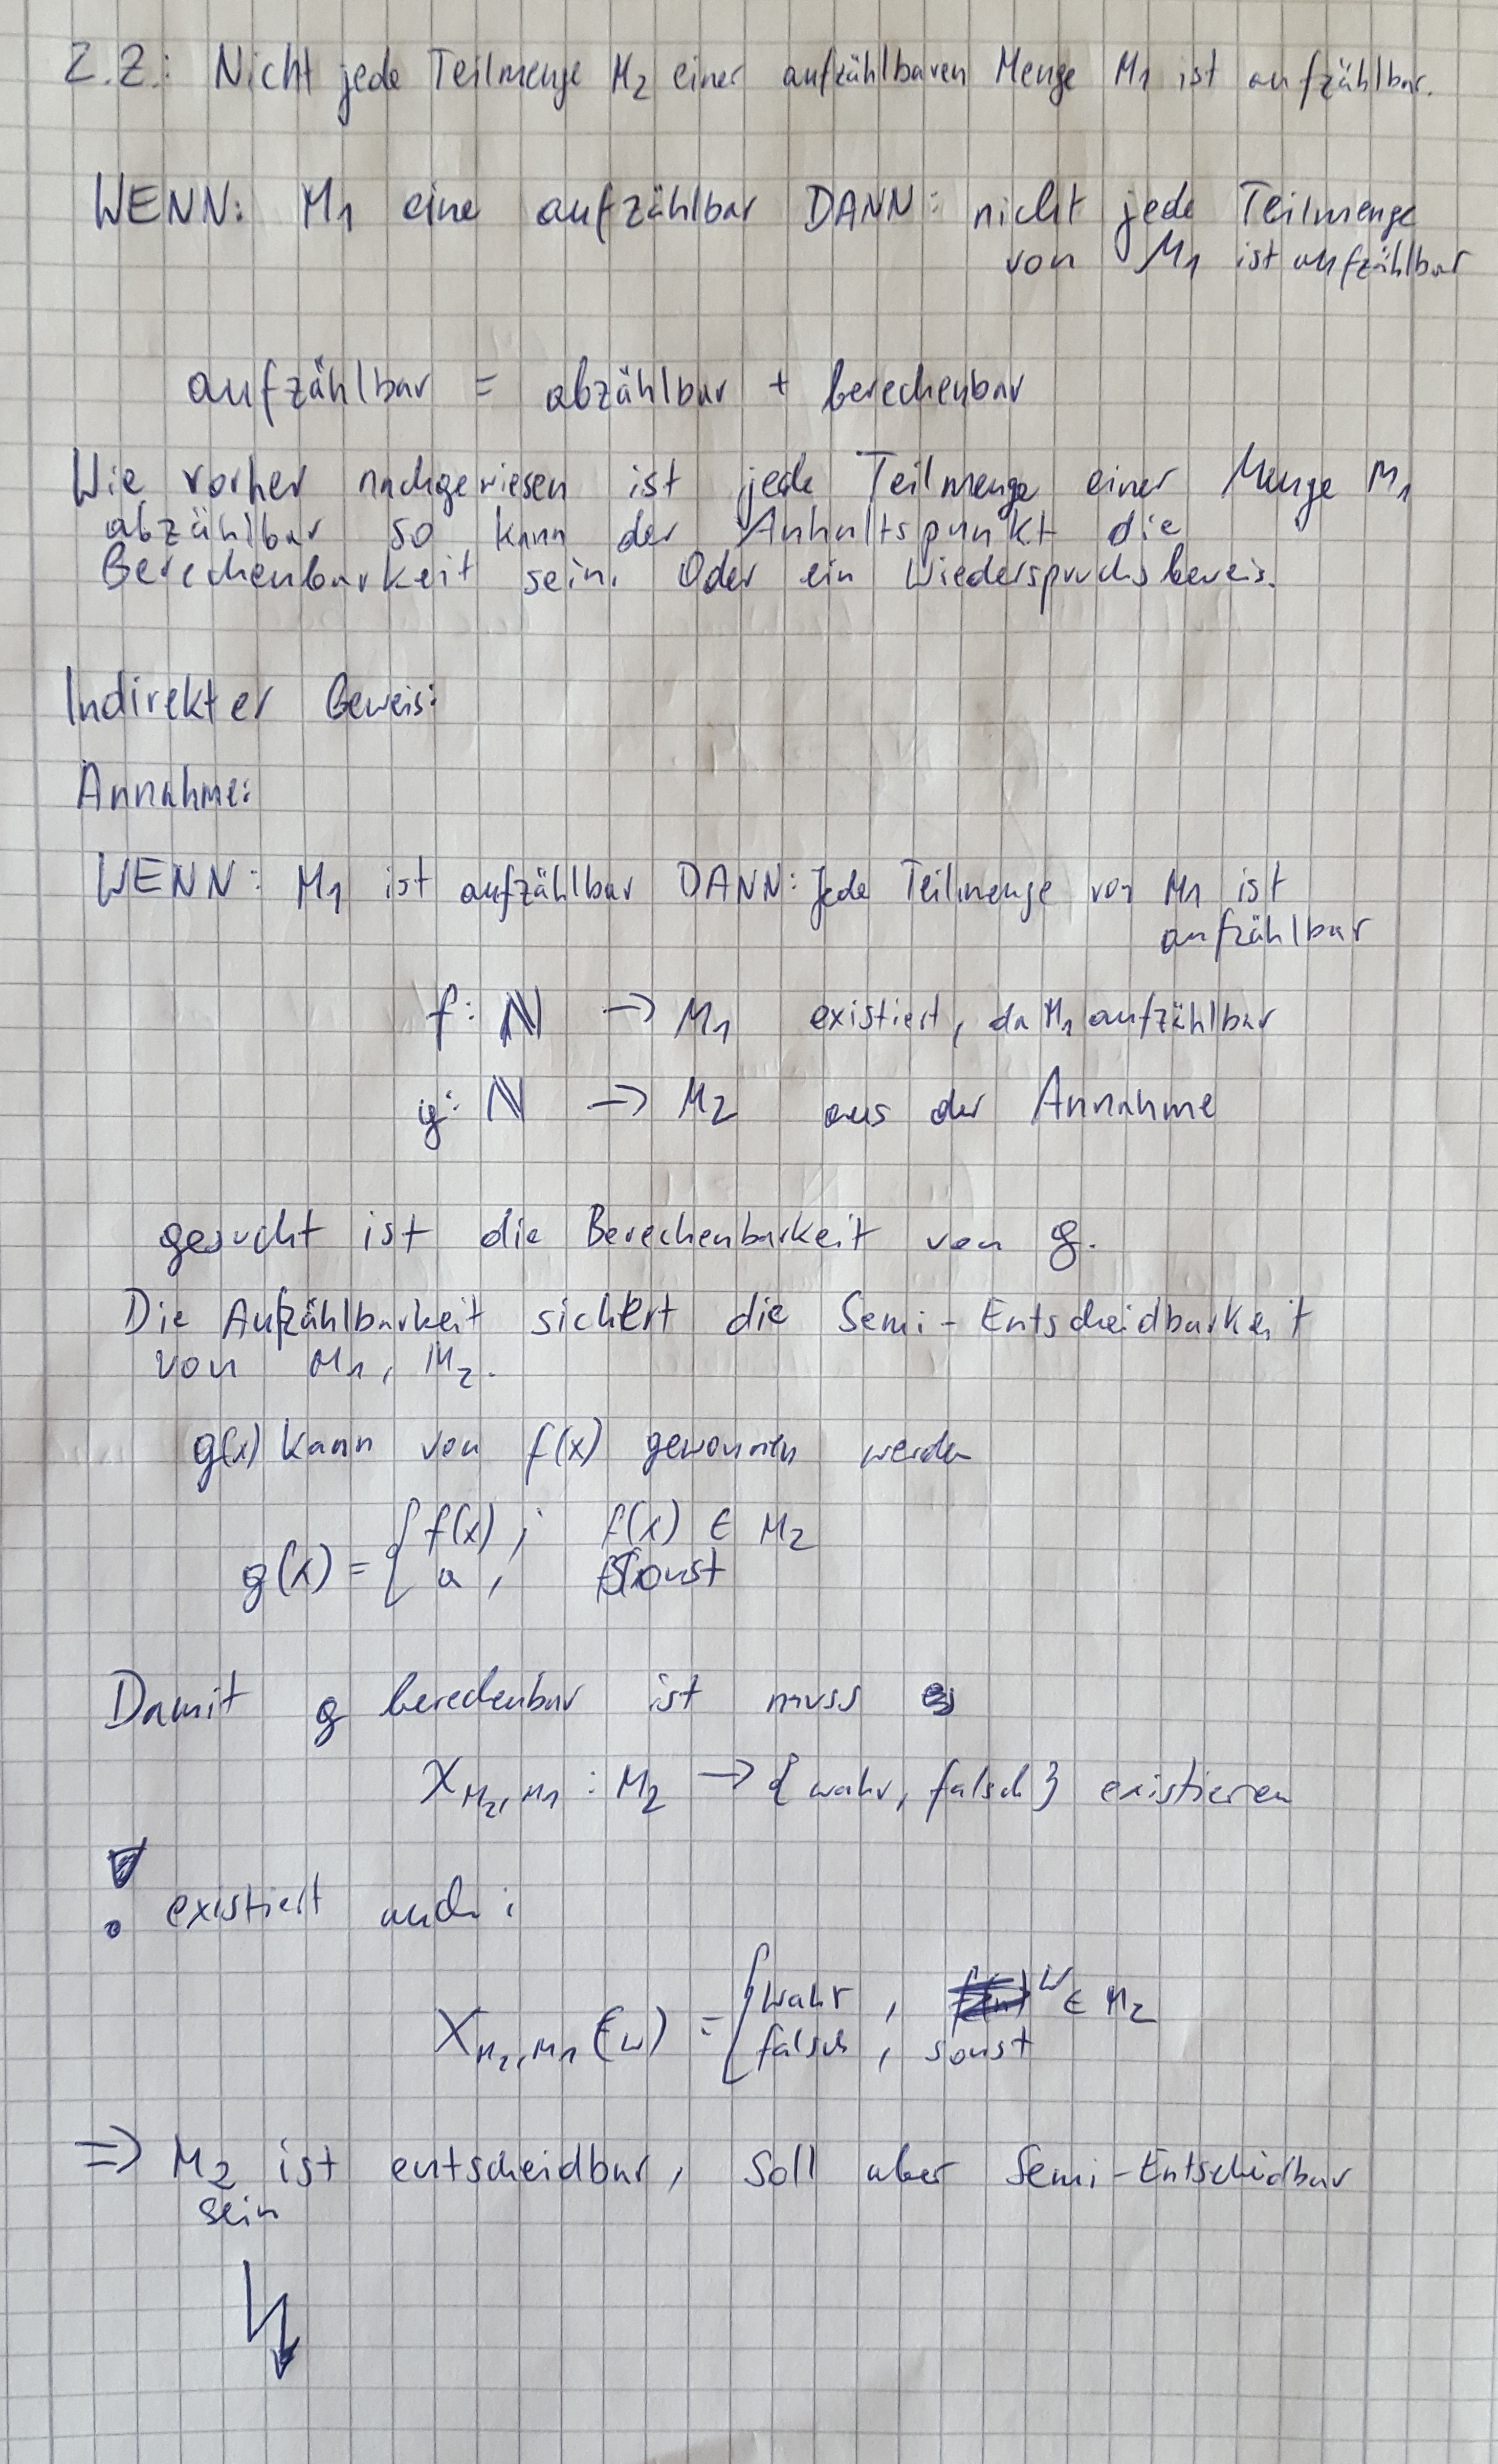 Z.Z.: Nicht jede Teilmenge M₂ einer aufzählbaren Menge M₁ ist aufzählbar.
WENN: M₁ eine aufzählbar DANN: nicht jede Teilmenge
von M₁ ist aufzählbar
aufzählbar = abzählbar + berechenbar
Wie vorher nachgewiesen ist jede Teilmenge einer Menge M₁
abzählbar so kann der Anhaltspunkt die
Berechenbarkeit sein. Oder ein Wiederspruchsbeweis.
Indirekter Beweis:
Annahme:
WENN: M₁ ist aufzählbar DANN: Jede Teilmenge von M₁ ist
aufzählbar
f: ℕ → M₁ existiert, da M₁ aufzählbar
g: ℕ → M₂ aus der Annahme
gesucht ist die Berechenbarkeit von g.
Die Aufzählbarkeit sichert die Semi-Entscheidbarkeit
von M₁, M₂.
g(x) kann von f(x) gewonnen werden
g(x) = { f(x) ; f(x) ∈ M₂
a , sonst
Damit g berechenbar ist muss
χ_M₂,M₁ : M₂ → {wahr, falsch} existieren
! existiert auch:
χ_M₂,M₁(w) = { wahr , w ∈ M₂
falsch , sonst
⇒ M₂ ist entscheidbar, soll aber Semi-Entscheidbar
sein